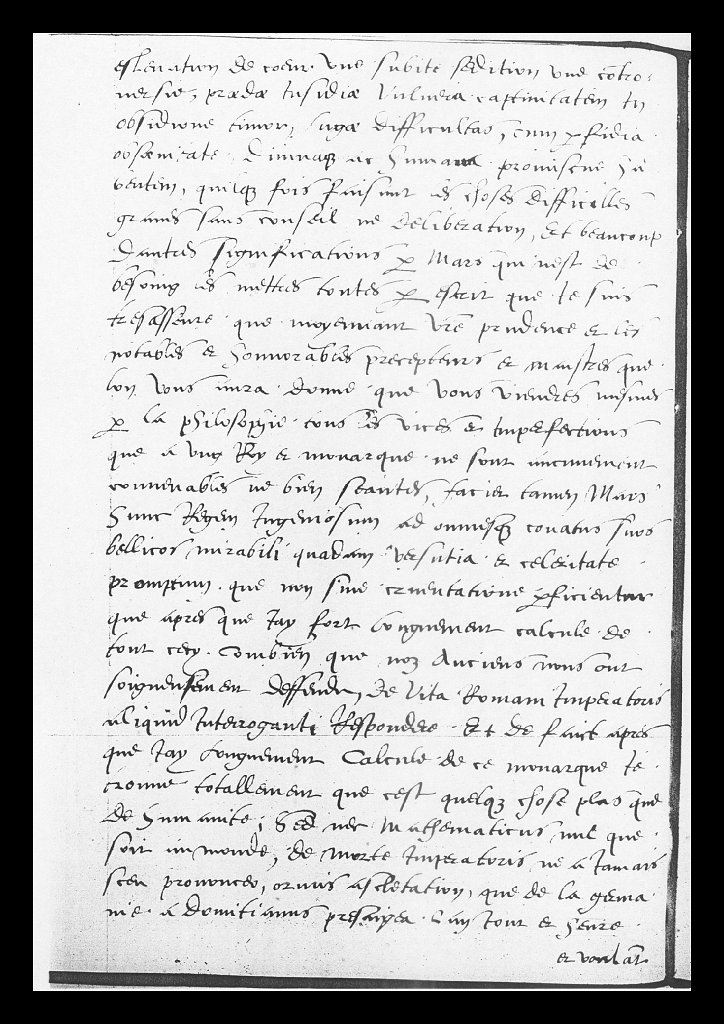 eslevation de coeur. Une subite sedition une cõtro-
versie, prædæ insidiæ vulnera captivitatem in
obsidione timor, fugæ difficultas, cum ꝑfidia
obscenitate. Divinaqꝫ ac humana promiscue ha
bentem, quelqꝫ fois faisant les choses difficilles
graves sans conseil ne deliberation, Et beaucoup
dautres significations ꝑ Mars qui nest de
besoing les mettres toutes ꝑ escrit que Je suis
tresasseure que moyennant vr̃e prudence et les
notables et honnorables precepteurs et maistres que
lon vous aura donne que vous viendres mesmes
ꝑ la philosophie tous les vices et Imperfections
que a Ung Roy et monarque ne sont aucunement
convenables ne bien seantes, faciet tamen Mars
hunc Regem Ingeniosum ad omnesqꝫ conatus suos
bellicos mirabili quadam versutia et celeritate
promptum que non sine cruentatione ꝑficientur
que apres que Jay fort longuement calcule de
tout cecy. Combien que noz Anciens nous ont
soigneusement deffendu, de Vita Romani Imperatoris
aliquid Interroganti Respondere. Et de faict apres
que Jay longuement Calcule de ce monarque Je
trouve totallement que cest quelqꝫ chose plus que
de humanite; Sed nec Mathematicus nul que
soit au monde, de morte Imperatoris ne a Jamais
sceu prononcer, ormis ascletation, que de la germa
nie a domitianus presaigea. Lan Jour et heure
et voulãt